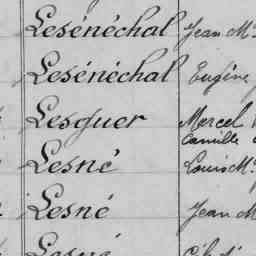 Lesénéchal Jean M
Lesénéchal Eugène
Lesguer Marcel
Camille
Lesné Louis M
Lesné Jean M
Lesné